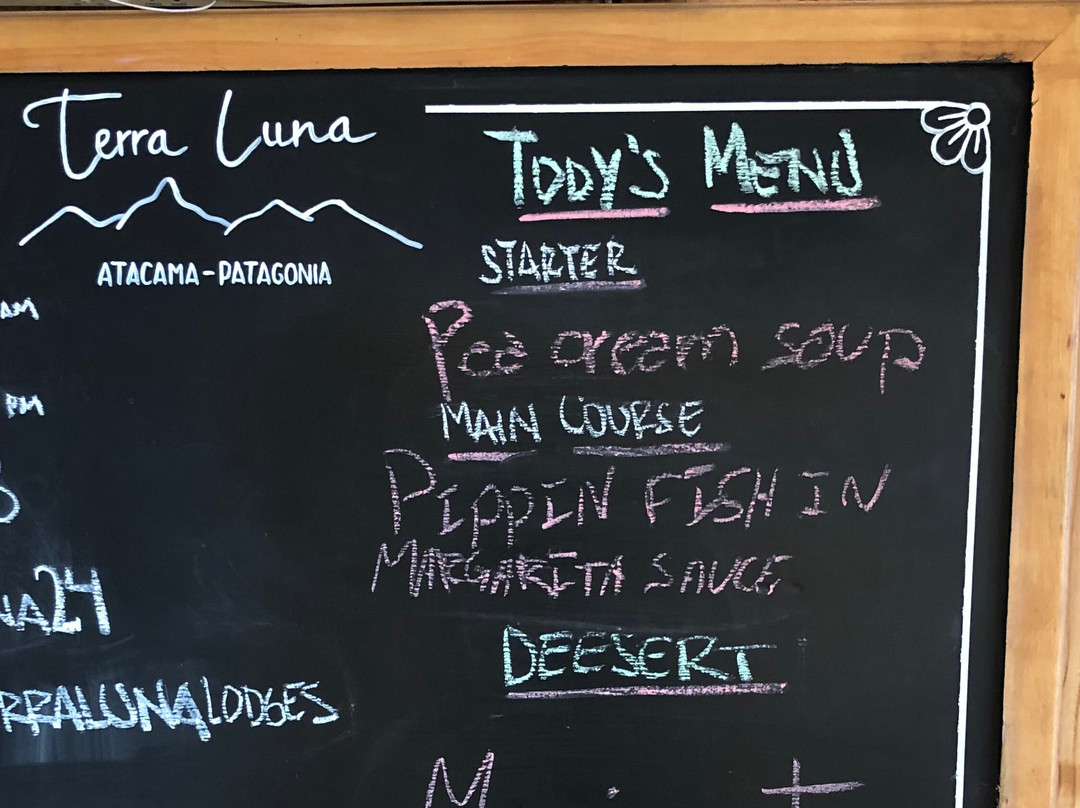 Terra Luna
ATACAMA-PATAGONIA
AM
PM
NA24
RRALUNALODGES
TODY'S MENU
STARTER
Pea cream soup
MAIN COURSE
PIPPIN FISH IN
MARGARITA SAUCE
DEESERT